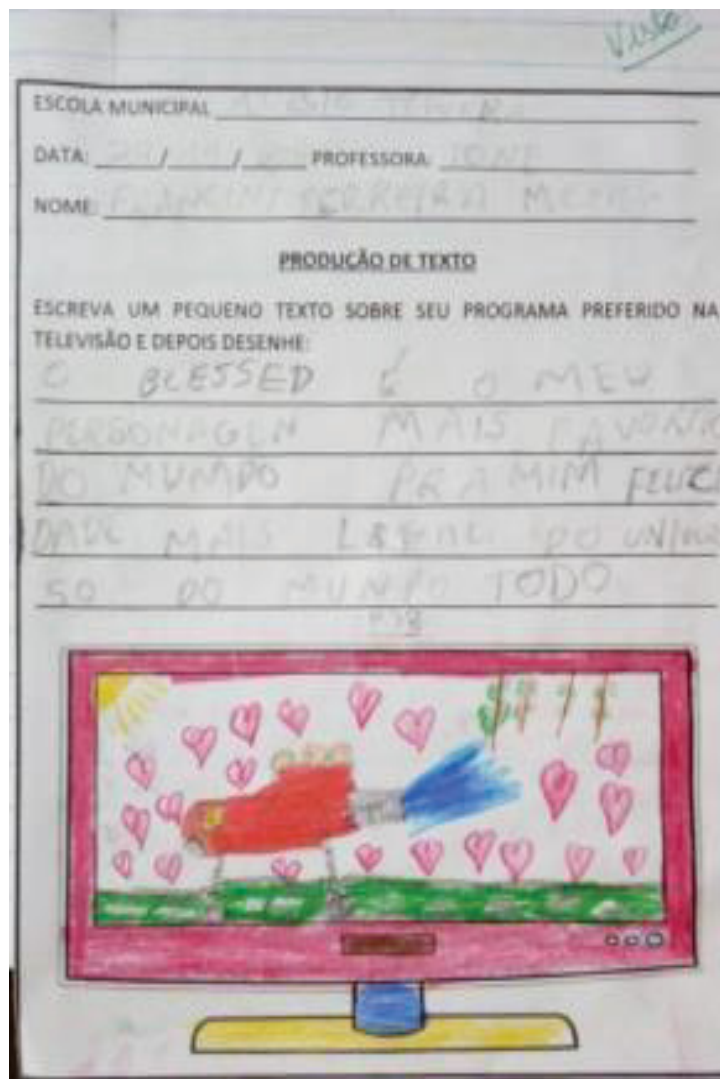 Visto
ESCOLA MUNICIPAL
DATA: / / PROFESSORA: IONE
NOME: FERREIRA
PRODUÇÃO DE TEXTO
ESCREVA UM PEQUENO TEXTO SOBRE SEU PROGRAMA PREFERIDO NA
TELEVISÃO E DEPOIS DESENHE:
O BLESSED É O MEU
PERSONAGEN MAIS FAVORITO
DO MUMDO PRA MIM FELICI
DADE MAIS DO UNIVER
SO DO MUNDO TODO